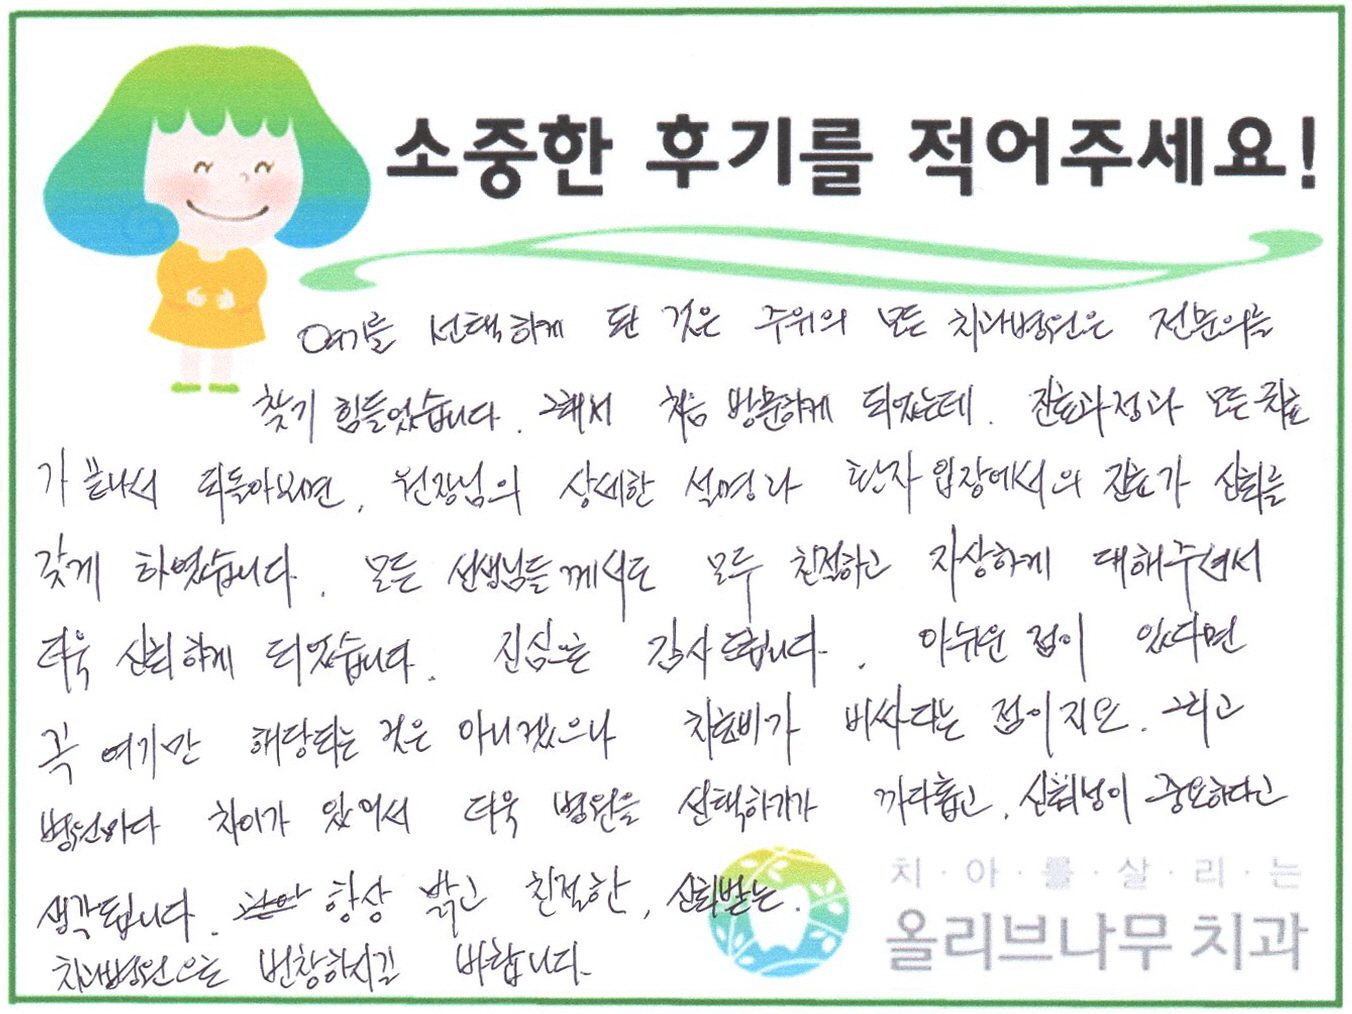 소중한 후기를 적어주세요!
여기를 선택하게 된 것은 주위의 모든 치과병원은 전문의를
찾기 힘들었습니다. 그래서 처음 방문하게 되었는데. 진료과정과 모든 치료
가 끝나서 되돌아보면, 원장님의 상세한 설명과 환자 입장에서의 진료가 신뢰를
갖게 하였습니다. 모든 선생님들께서도 모두 친절하고 자상하게 대해주셔서
더욱 신뢰하게 되었습니다. 진심으로 감사드립니다. 아쉬운 점이 있다면
꼭 여기만 해당되는 것은 아니겠으나 치료비가 비싸다는 점이지요. 그리고
병원마다 차이가 있어서 더욱 병원을 선택하기가 까다롭고, 신뢰성이 중요하다고
생각됩니다. 항상 밝고 친절한, 신뢰받는.
치과병원으로 번창하시길 바랍니다.
치·아·를·살·리·는
올리브나무 치과